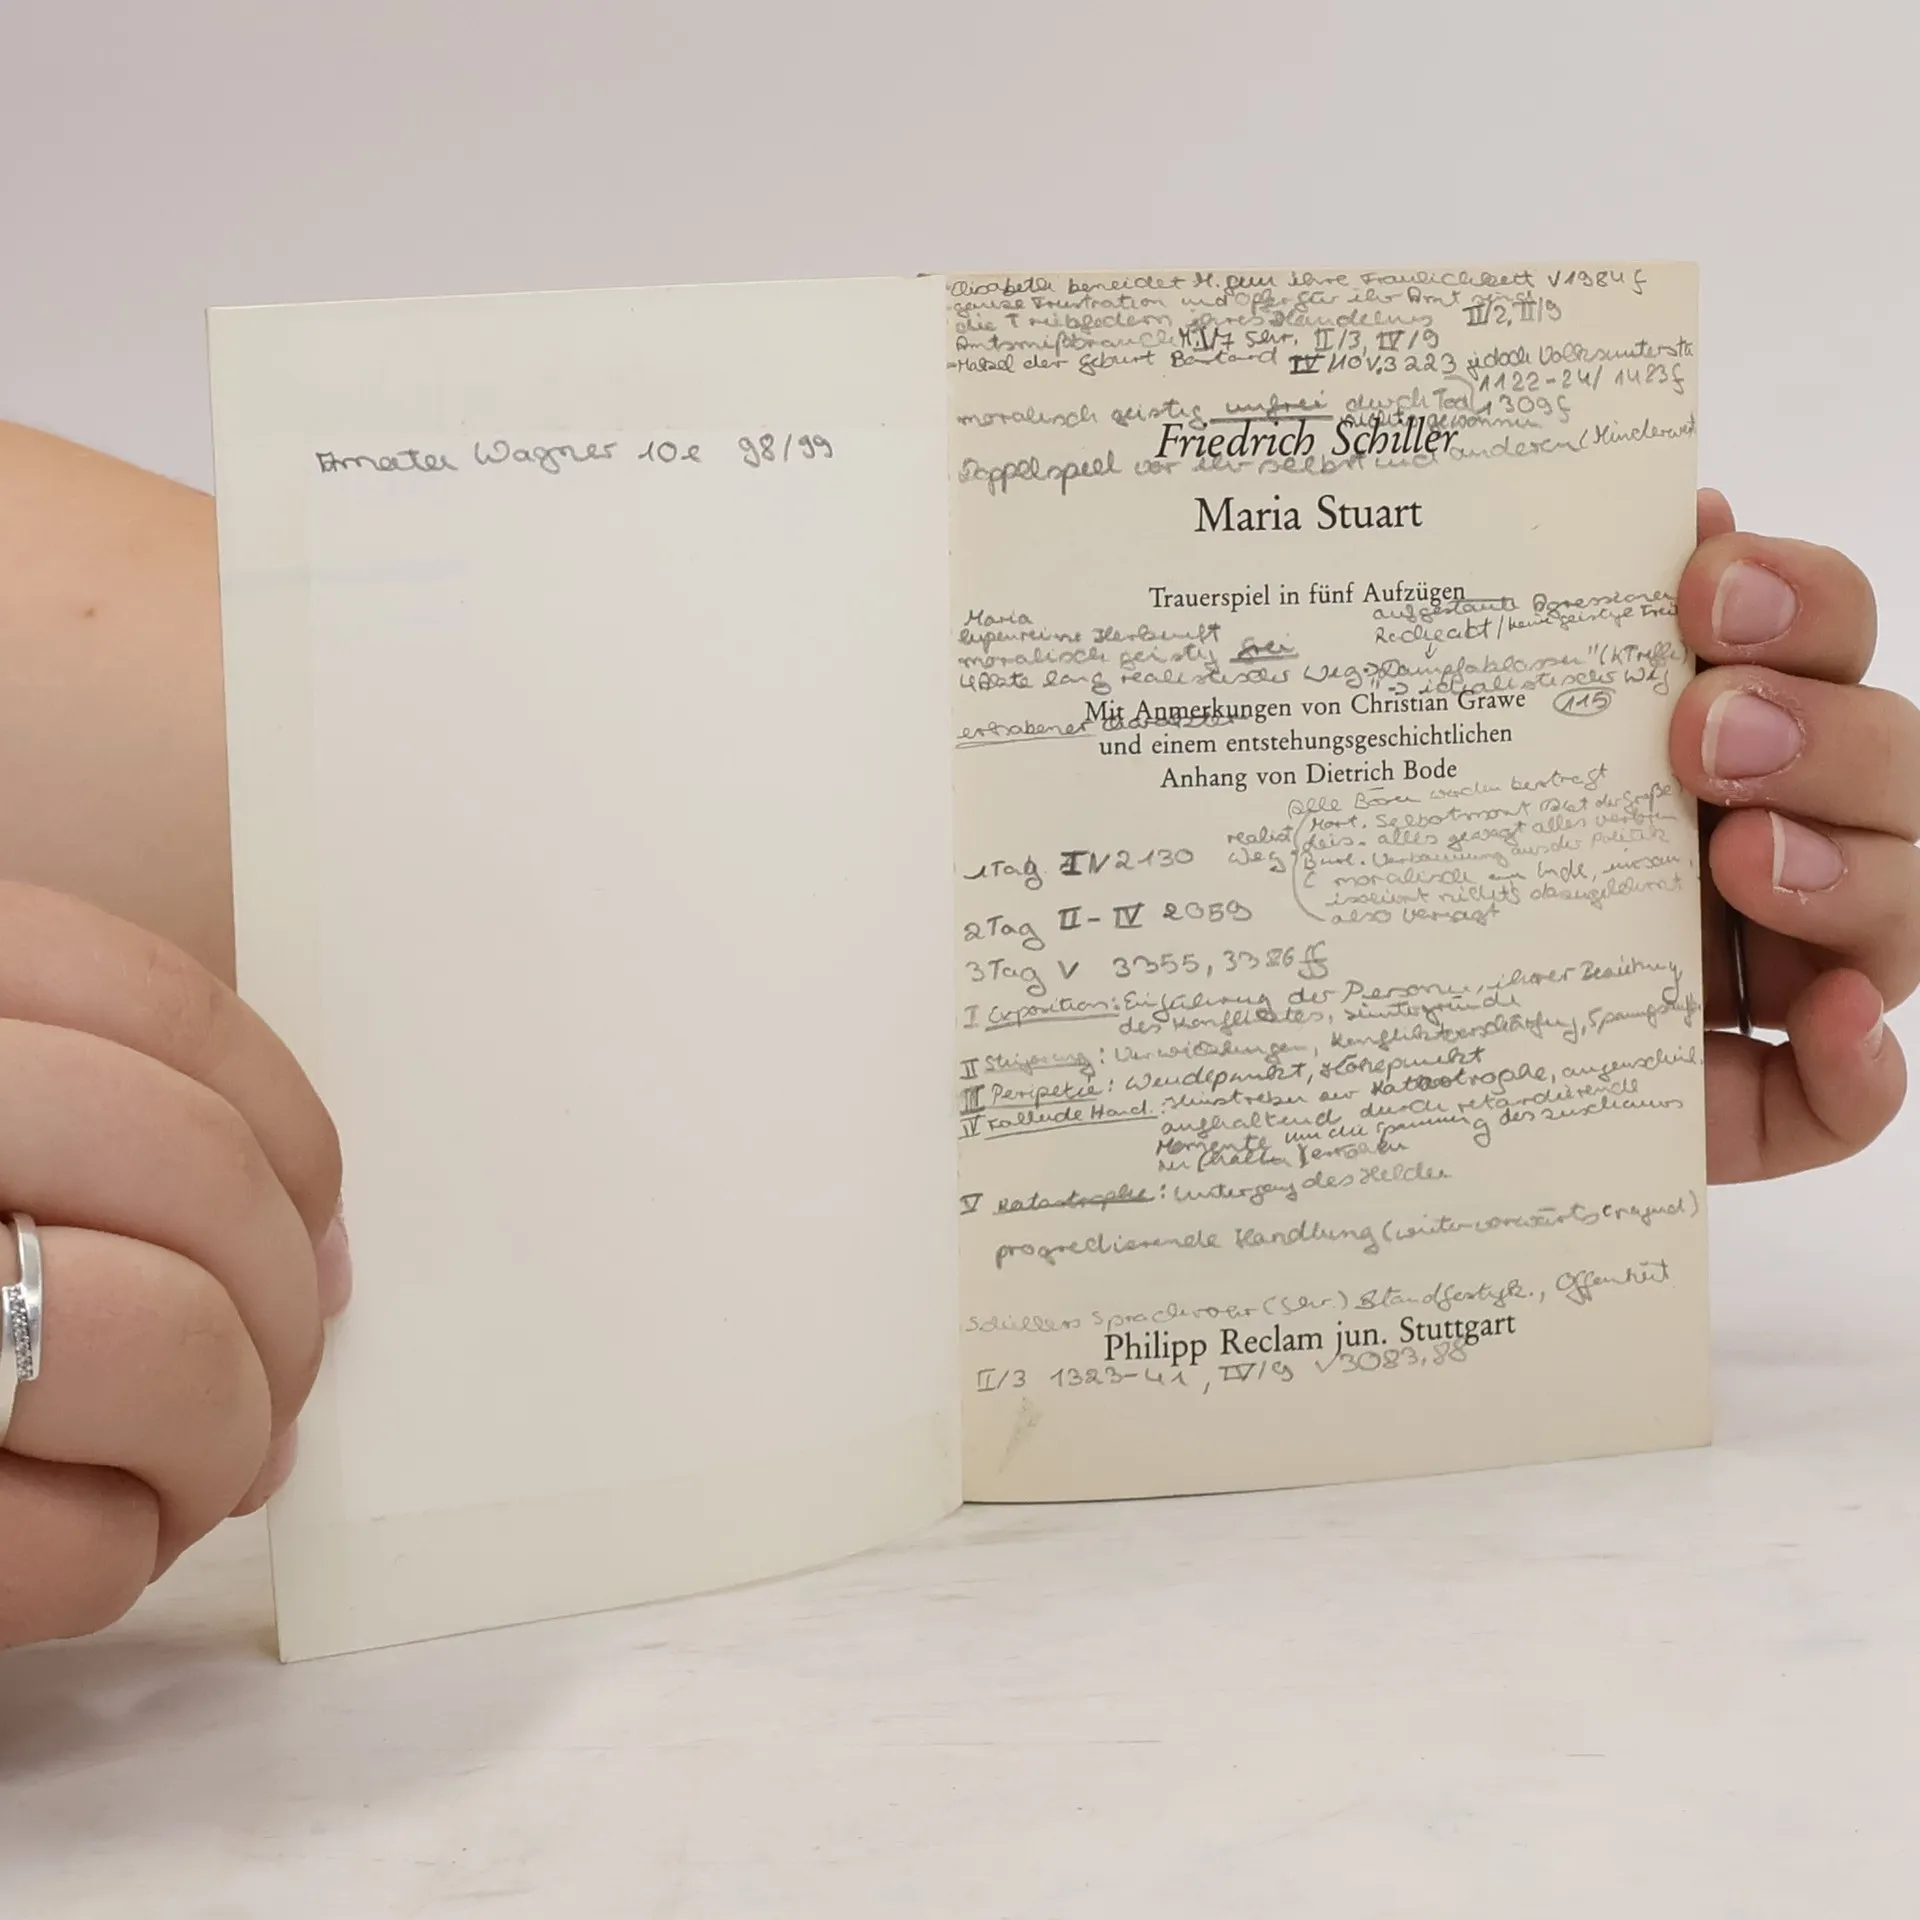 Wagner 10e 98/99
Elisabeth beneidet M. um ihre Fraulichkeit V 1984 f
ganze Frustration und Opfer für ihr Amt sind
die Triebfedern ihres Handelns II/2, II/9
Amtsmißbrauch M. I/7 Shr. II/3, IV/9
Makel der Geburt Bastard IV/10 V.3223 jedoch Volksunterstü
1122-24/ 1423f
moralisch geistig unfrei durch Tod 1309f
nichts gewonnen
Friedrich Schiller
Doppelspiel vor ihr selbst und anderen (Minderwert
Maria Stuart
Trauerspiel in fünf Aufzügen
aufgestaute Agressionen
Maria
Racheakt / keine geistige Frei
lupenreine Herkunft
moralisch geistig frei
4 Akte lang realistischer Weg "Dampfablassen" (K Treffe)
"-> idealistischer Weg
Mit Anmerkungen von Christian Grawe 115
erhabener Charakter
und einem entstehungsgeschichtlichen
Anhang von Dietrich Bode
Alle Bösen werden bestraft
Mort. Selbstmord
realist Leis. alles gewagt alles verloren
Weg Burl. Verbannung aus der Politik
1 Tag I V 2130
moralisch am Ende, einsam,
isoliert nichts
also versagt
2 Tag II - IV 2059
3 Tag V 3355, 3386 ff
I Exposition: Einführung der Personen, ihrer Beziehung
des Konfliktes, Hintergründe
II Steigerung: Verwicklungen, Konfliktverschärfung,
III Peripetie: Wendepunkt, Höhepunkt
IV Fallende Hand.: Hinstreben zur Katastrophe, augenscheinl.
aufhaltend durch retardierende
Momente um die Spannung des Zuschauers
zu (halten) erhöhen
V Katastrophe: Untergang des Helden
progredierende Handlung (weiter vorwärts
Schillers Sprachrohr (Shr.) Standfestigk., Offenheit
Philipp Reclam jun. Stuttgart
II/3 1323-41, IV/9 V3083, 88